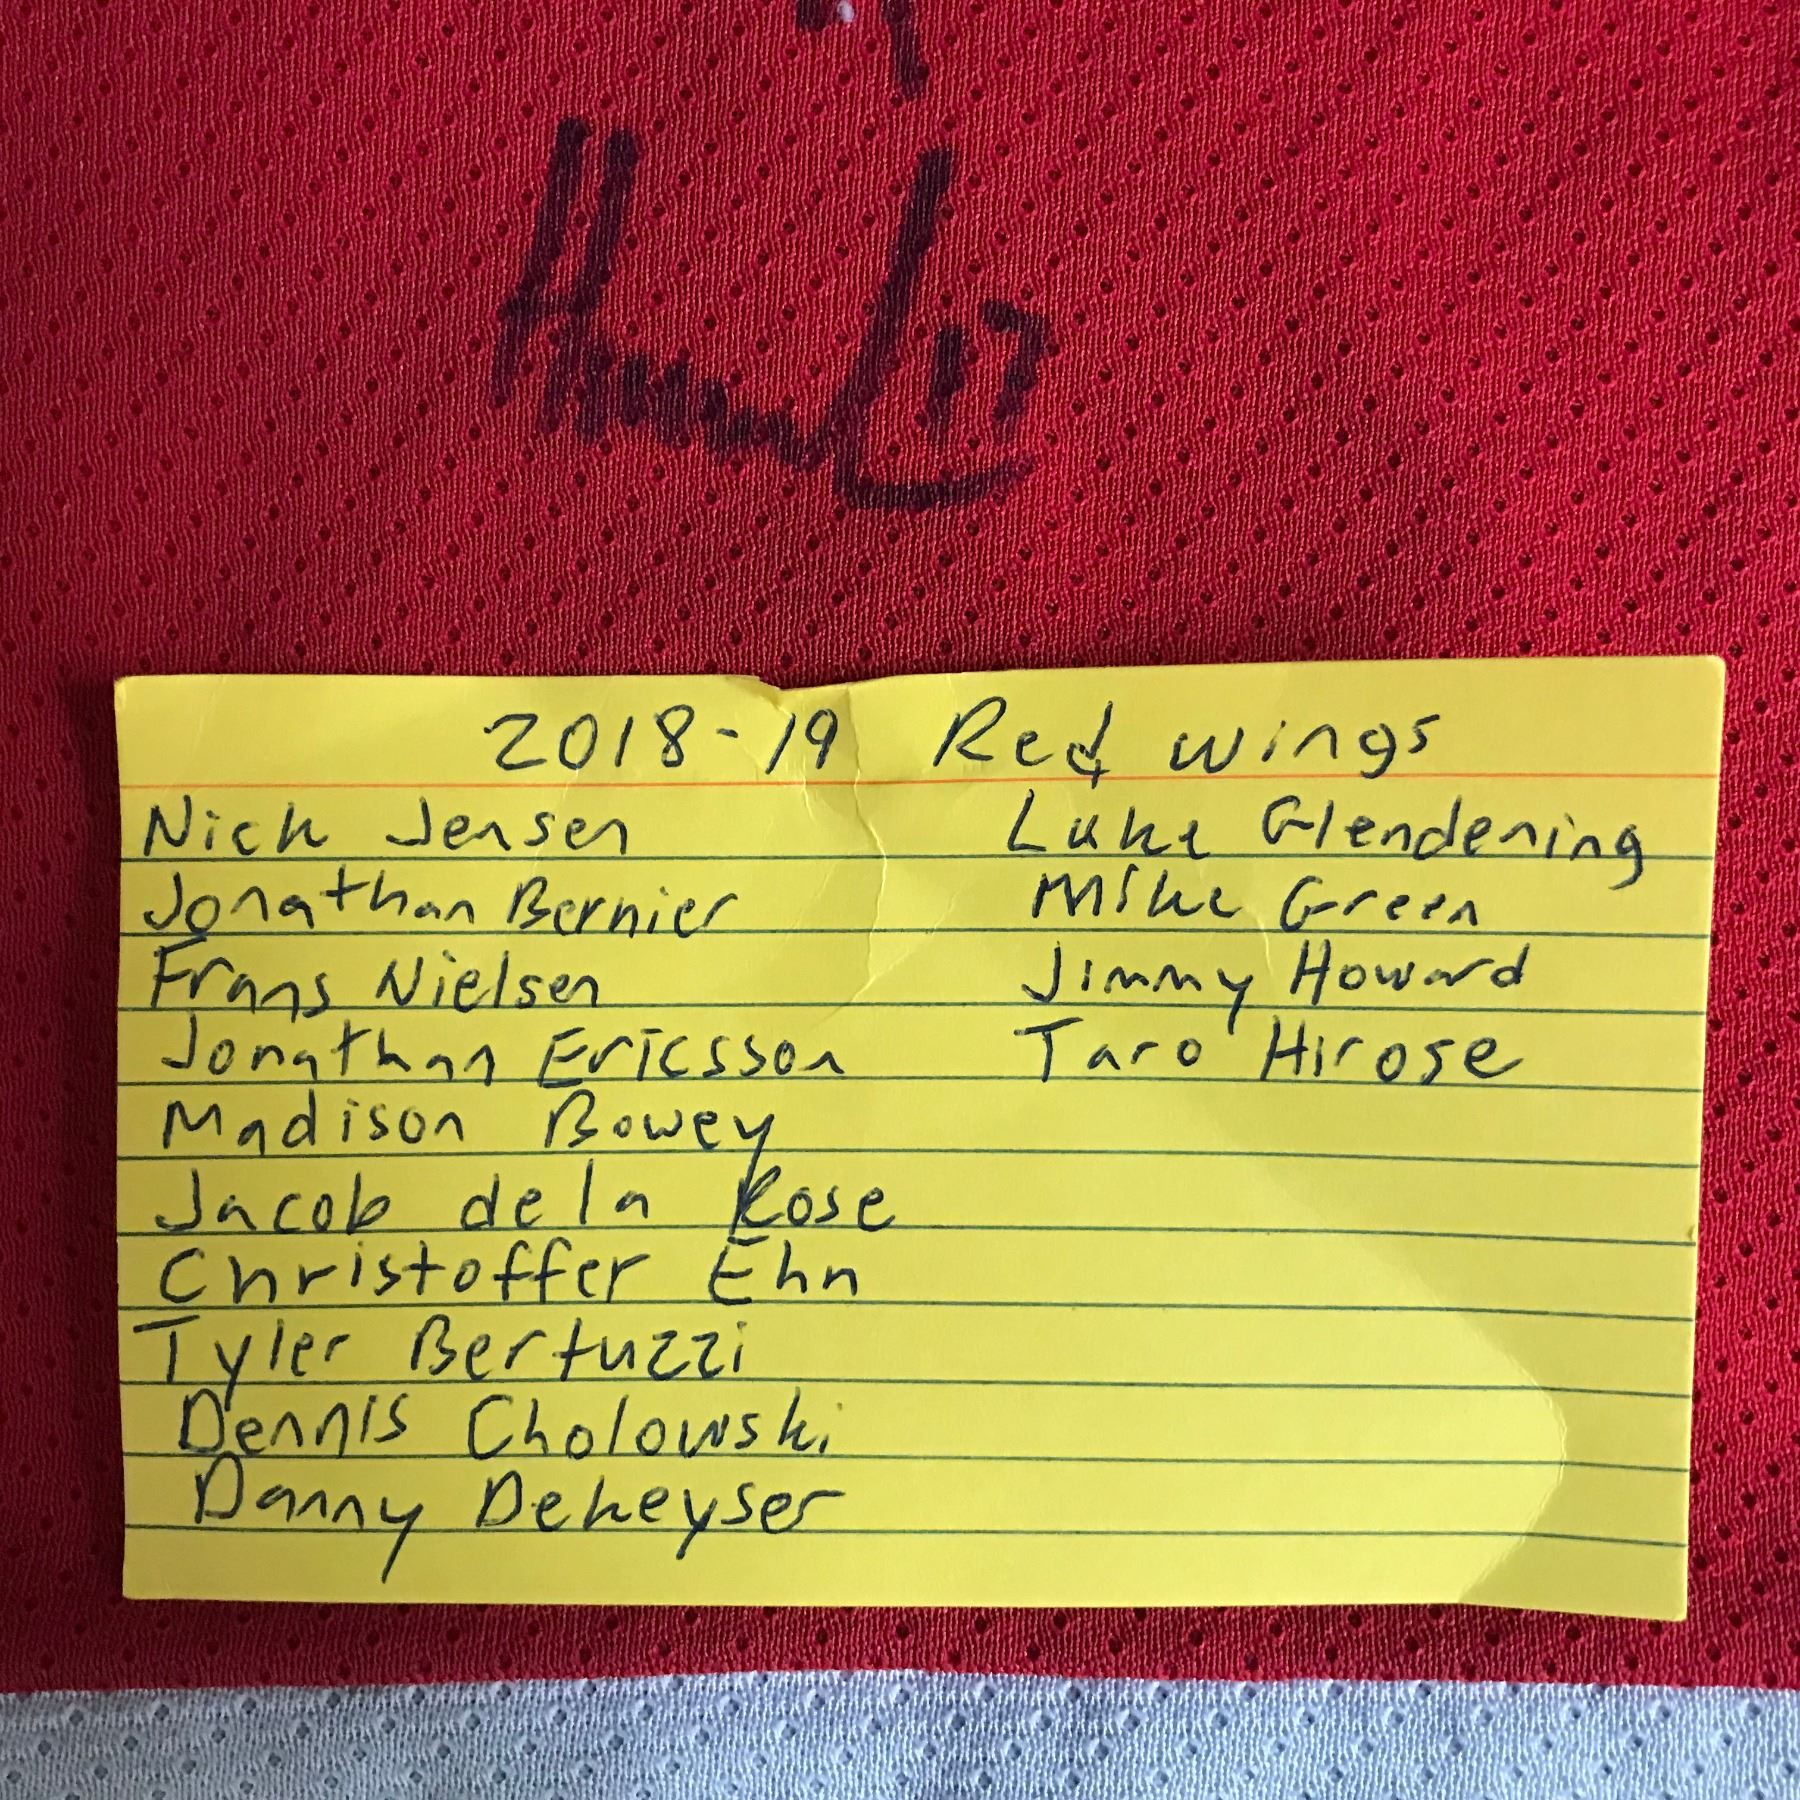 17
2018-19 Red Wings
Nick Jensen
Jonathan Bernier
Frans Nielsen
Jonathan Ericsson
Madison Bowey
Jacob de la Rose
Christoffer Ehn
Tyler Bertuzzi
Dennis Cholowski
Danny Dekeyser
Luke Glendening
Mike Green
Jimmy Howard
Taro Hirose